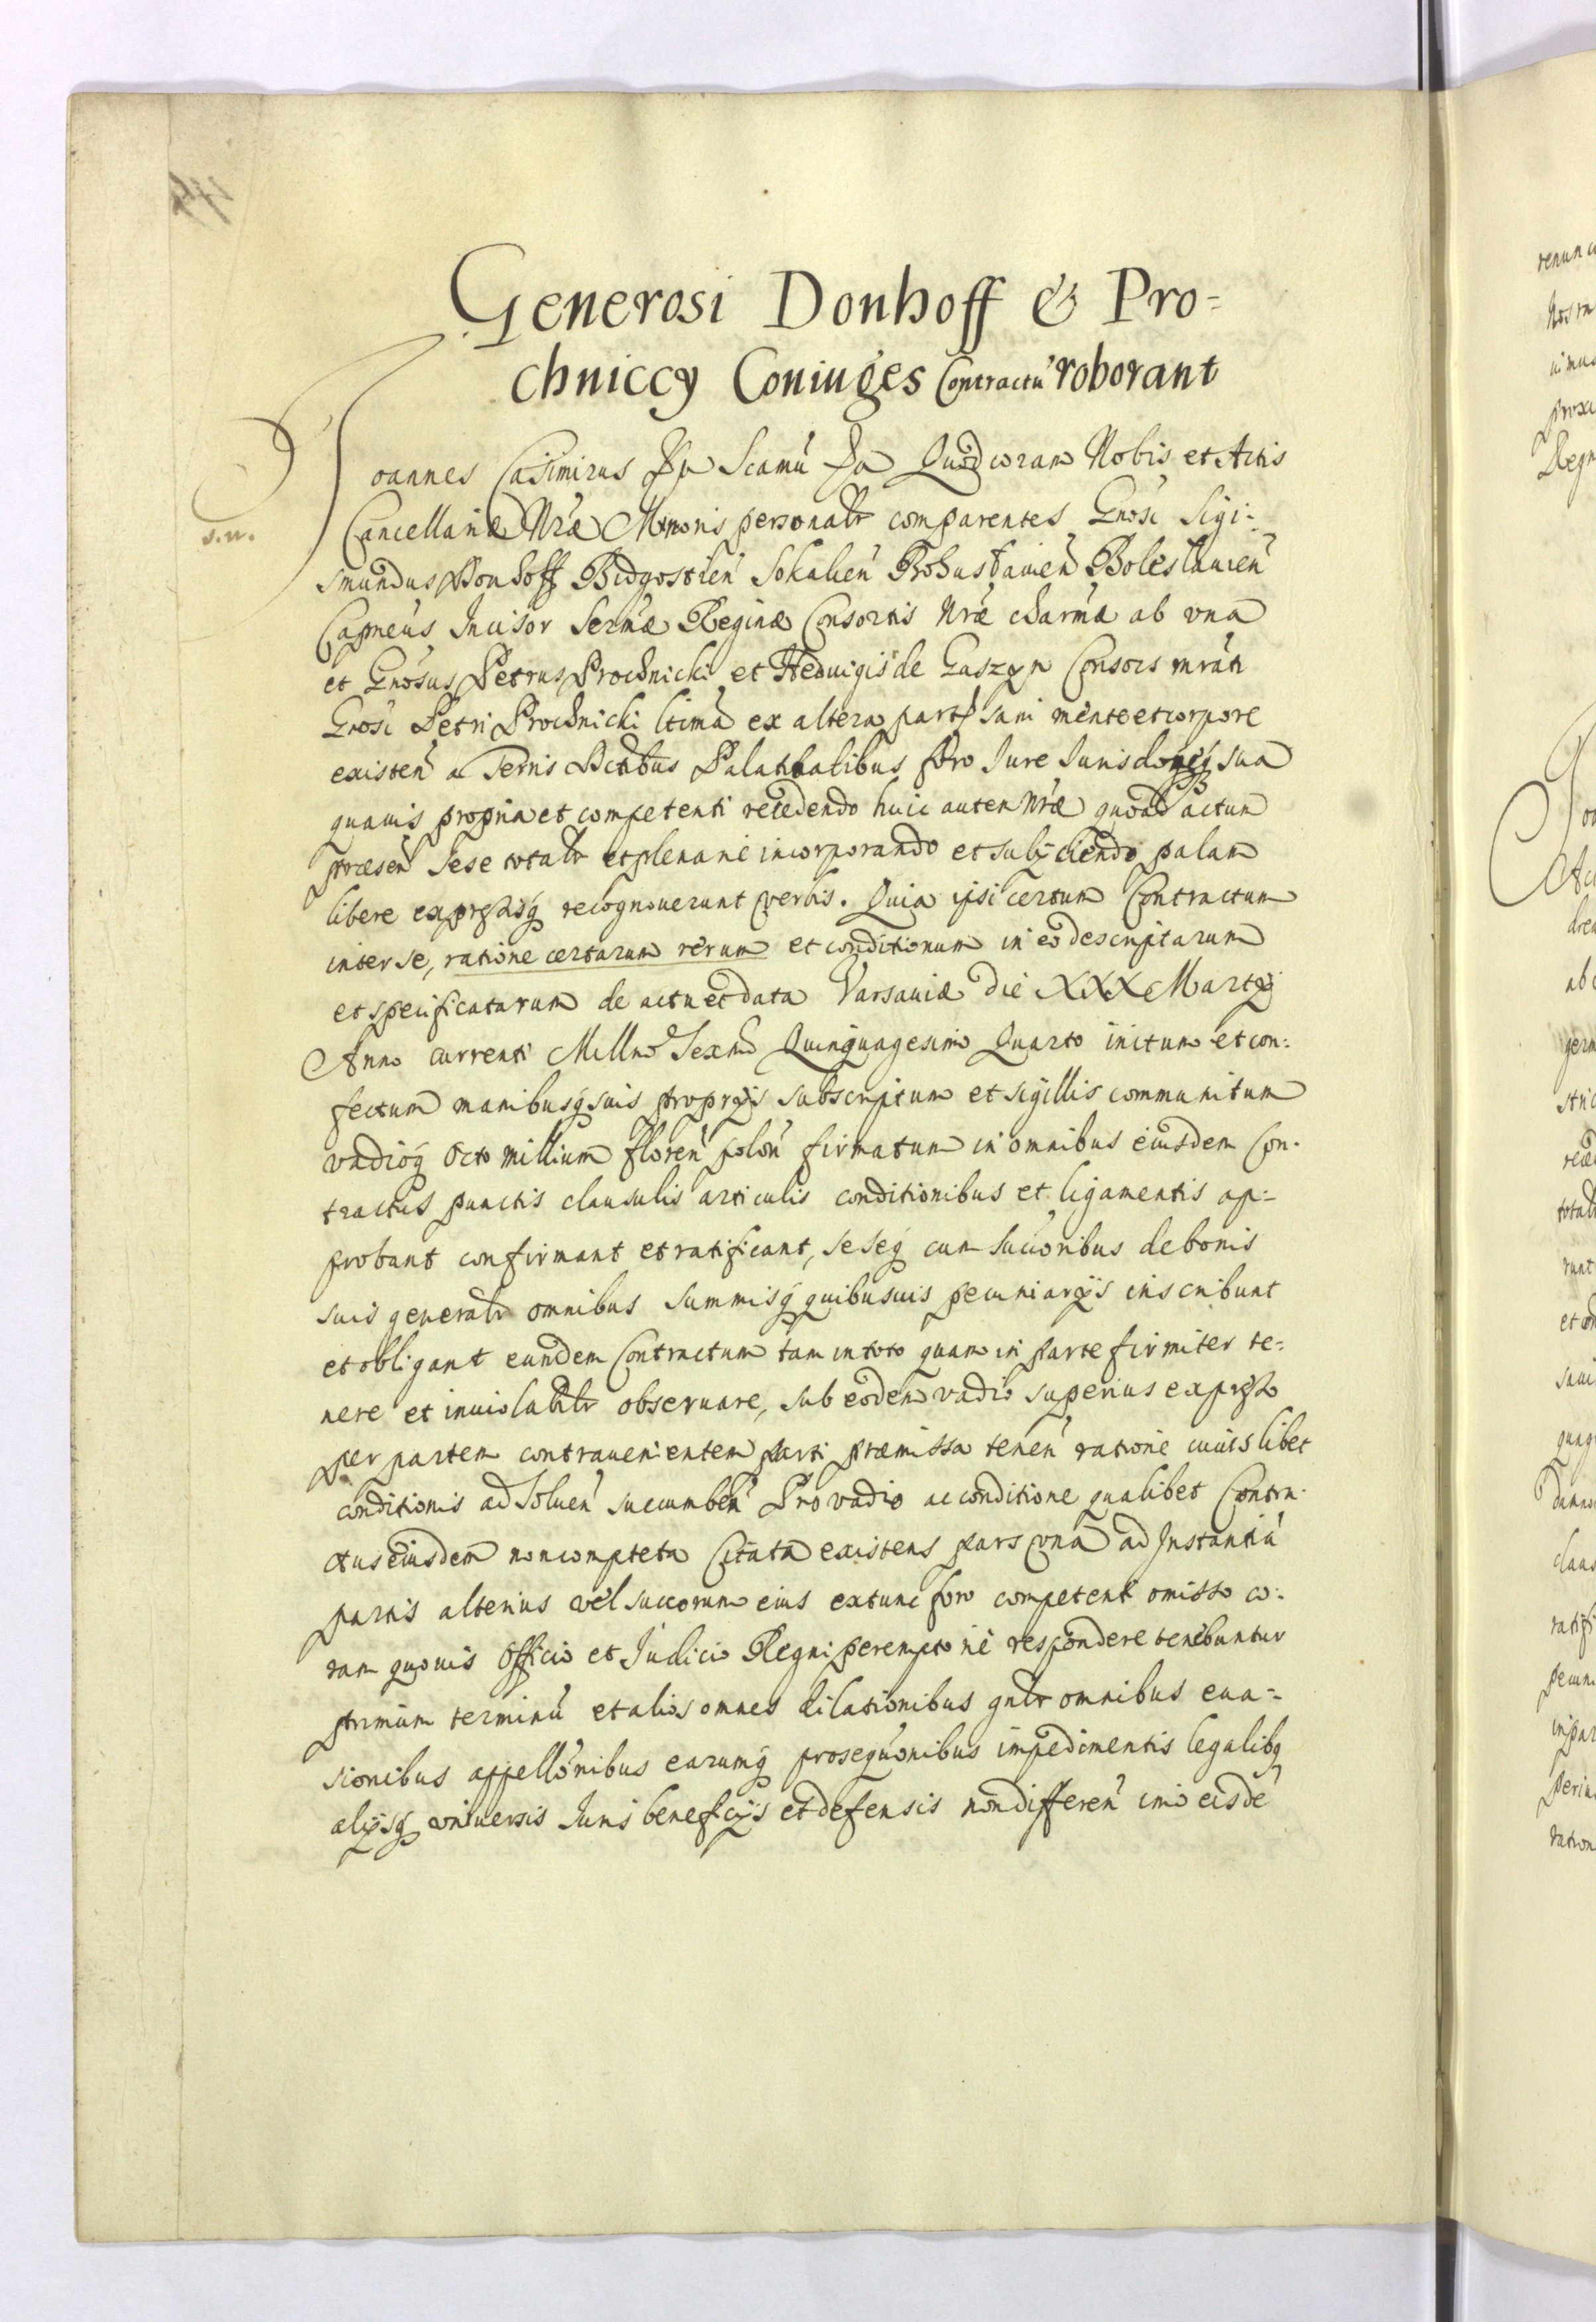 Generosi Donhoff & Pro=
chniccy Coniuges Contractũ roborant
Joannes Casimirus Scamũ Quod coram Nobis et Actis
s.w.
Cancellariæ Nræ Minoris personalr comparentes Gnosi Sigi=
smundus Donhoff Bidgostien Sokalien Rohustauien Boleslauien
Capneus Incisor Sermæ Reginæ Consortis Nræ charmæ ab vna
et Gnosus Petrus Prochnicki et Heduigis de Gaszyn Consors mrati
Gnosi Petri Prochnicki ltima ex altera part sani mente et corpore
existen a Terris Palatinalibus foro Jure sua
quauis propria et competenti recedendo huic autem Nræ quoad actum
præsen sese totalr et plenarie incorporando et subijciendo palam
libere expressisq recognouerunt verbis. Quia ipsi certum Contractum
inter se, ratione certarum rerum et conditionum in eo descriptarum
et specificatarum de actu et data Varsauiæ die XXX Martij
Anno currenti Millmo Sexmo Quinquagesimo Quarto initum et con=
fectum manibusq suis proprijs subscriptum et sigillis communitum
vadioq Octo millium floren polon firmatum in omnibus eiusdem Con=
tractus punctis clausulis articulis conditionibus et ligamentis ap=
probant confirmant et ratificant, seseq cum succoribus de bonis
suis generalr omnibus summisq quibusuis pecuniarijs inscribunt
et obligant eundem Contractum tam in toto quam in parte firmiter te=
nere et inuiolabilr obseruare, sub eodem vadio superius expresso
per partem contrauenientem parti præmissa tenen ratione cuiuslibet
conditionis ad soluen succumben Pro vadio ac conditione qualibet Contra=
ctus eiusdem non completa Citata existens pars vna ad Instantiã
partis alterius vel succorum eius extunc foro competenti omisso co=
ram quouis Officio et Iudicio Regni peremptorie respondere tenebuntur
primum terminũ et alios omnes dilationibus gnlr omnibus eua=
sionibus appellonibus earumq prosequonibus impedimentis legalibq
alijsq vniuersis Juris beneficijs et defensis non differen imo eisdẽ